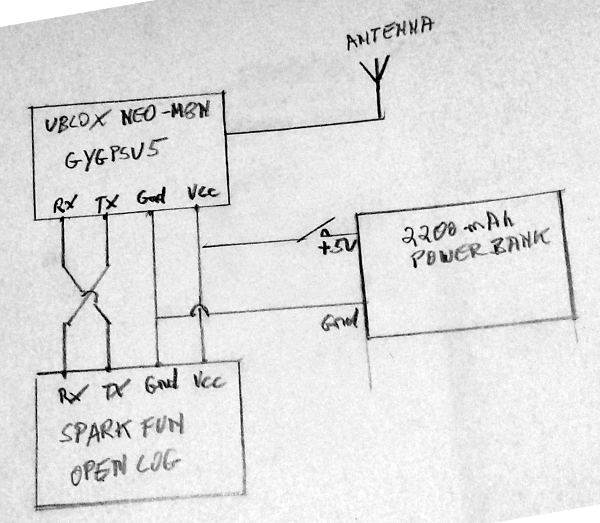 ANTENNA
UBLOX NEO-M8N
GYGPSV5
Rx TX Gnd Vcc
2200 mAh
POWER BANK
+5V
Gnd
Rx TX Gnd Vcc
SPARK FUN
OPEN LOG